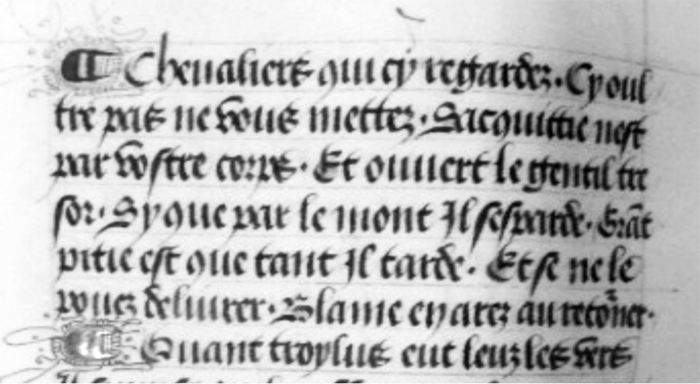 ¶ Chevaliers qui cy regardez. Cy oul
tre pas ne vous mettez. Sacquittie nest
par vostre corps. Et ouuert le gentil tre
sor. Sy que par le mont Il sespande. Grãt
pitie est que tant Il tarde. Et se ne le
pouez deliurer. Blame en arez au retõner.
¶ Quant troylus eut leuz les vers